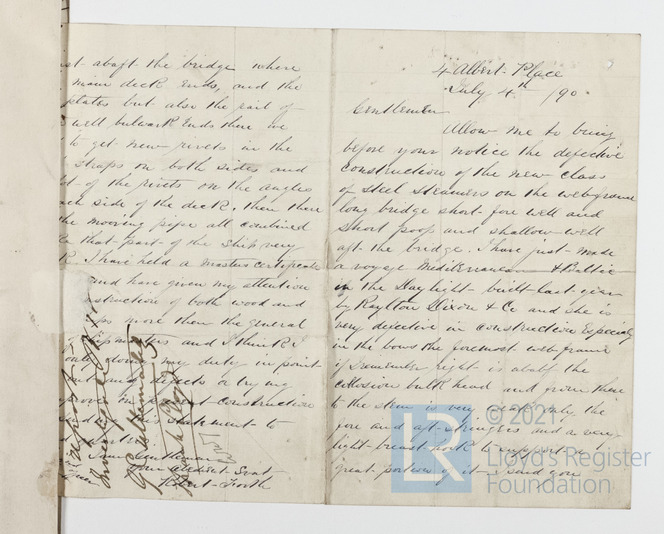 4 Albert Place
July 4th /90.
Gentlemen
Allow me to bring
before your notice the defective
construction of the new class
of Steel Steamers on the web frame
long bridge short fore well and
short poop and shallow well
aft the bridge. I have just made
a voyage Mediterranean & Baltic
in the Daylight built last year
by Raylton Dixon & Co and she is
very defective in construction Especialy
in the bows the foremost web frame
if I remember right is abaft the
collosion bulk head and from there
to the stem is very weak only the
fore and aft stringers and a very
light breast hook to support a
great portion of it. I send you
abaft the bridge where
main deck ends, and the
plates but also the rail of
well bulwark Ends there we
to get new rivets in the
straps on both sides and
of the rivets on the angles
each side of the deck, then there
the mooring pipe all combined
that part of the ship very
I have held a masters certificate
and have given my attention
construction of both wood and
more them the general
and I think I
only doing my duty in point
defects a try
construction
statement to
Gentlemen
Your obedient Servt
Robert Forth
© 2021
LR
Lloyd's Register
Foundation